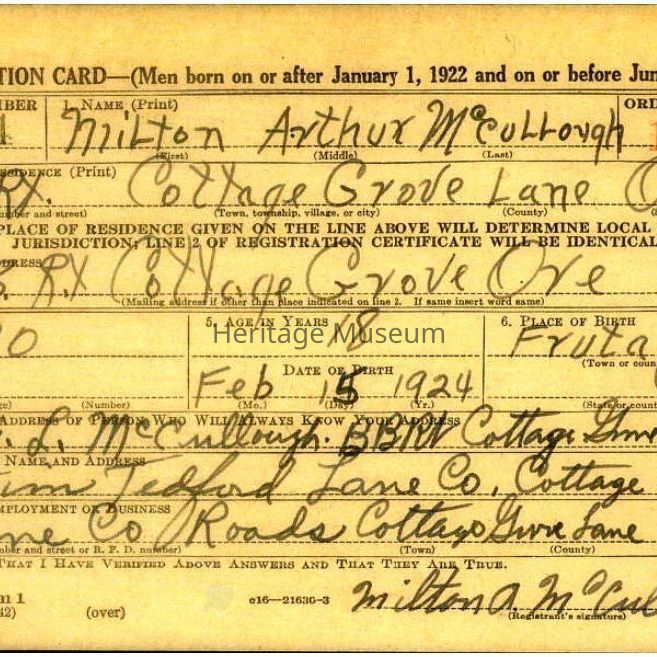 TION CARD—(Men born on or after January 1, 1922 and on or before Jun
MBER 1. NAME (Print) ORD
Milton Arthur McCullough
(First) (Middle) (Last)
ESIDENCE (Print)
RX. Cottage Grove Lane O
umber and street) (Town, township, village, or city) (County)
PLACE OF RESIDENCE GIVEN ON THE LINE ABOVE WILL DETERMINE LOCAL
JURISDICTION; LINE 2 OF REGISTRATION CERTIFICATE WILL BE IDENTICAL
DDRESS
RX Cottage Grove Ore
(Mailing address if other than place indicated on line 2. If same insert word same)
5. AGE IN YEARS 6. PLACE OF BIRTH
18 Fruta
Heritage Museum
(Town or coun
DATE OF BIRTH
Feb 15 1924
(Number) (Mo.) (Day) (Yr.) (State or count
ADDRESS OF PERSON WHO WILL ALWAYS KNOW YOUR ADDRESS
L. McCullough. Cottage Grove
NAME AND ADDRESS
Tedford Lane Co. Cottage
MPLOYMENT OR BUSINESS
ne Co Roads Cottage Grove Lane
mber and street or R. F. D. number) (Town) (County)
THAT I HAVE VERIFIED ABOVE ANSWERS AND THAT THEY ARE TRUE.
m 1 Milton A. McCul
42) (over) c16—21630-3 (Registrant's signature)